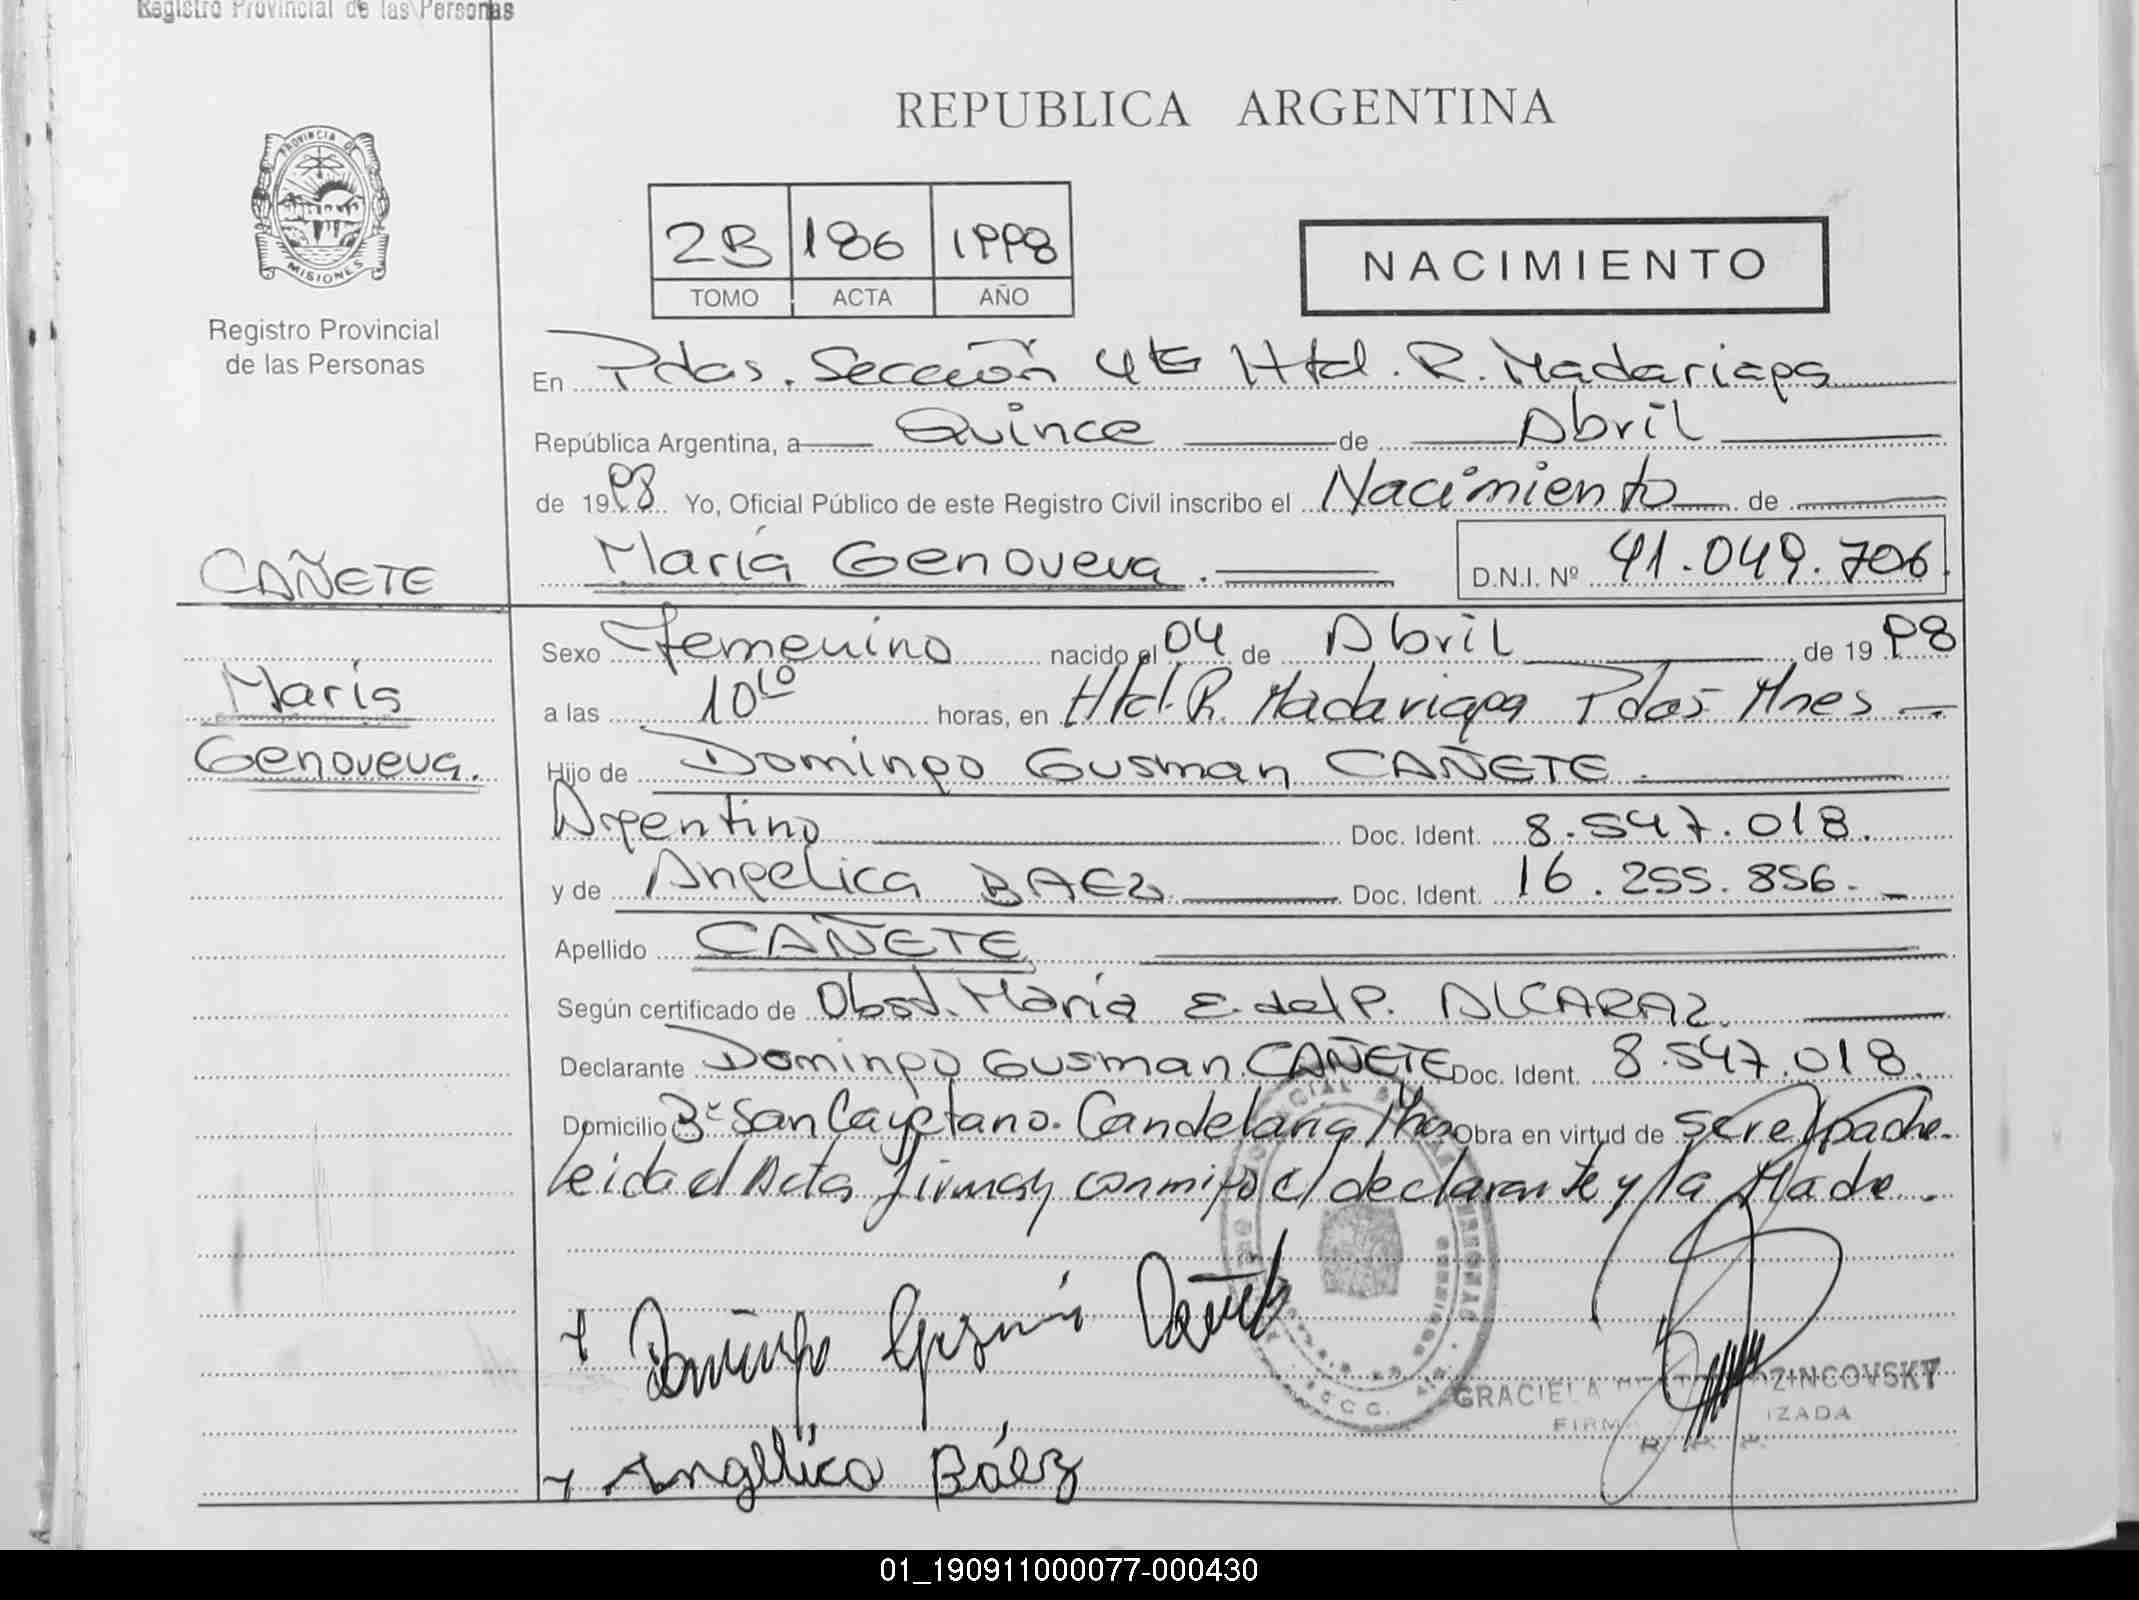 Registro Provincial de las Personas
REPUBLICA ARGENTINA
PROVINCIA DE
MISIONES
2B 186 1998
TOMO ACTA AÑO
NACIMIENTO
Registro Provincial
de las Personas
En Pdas. Sección 4ta Htal. R. Madariaga
República Argentina, a Quince de Abril
de 1998 Yo, Oficial Público de este Registro Civil inscribo el Nacimiento de
María Genoveva. D.N.I. Nº 41.049.706
CAÑETE
María
Genoveva.
Sexo Femenino nacido el 04 de Abril de 1998
a las 10 10 horas, en Htal. R. Madariaga Pdas Mnes
Hijo de Domingo Gusman CAÑETE.
Argentino Doc. Ident. 8.547.018.
y de Angelica BAEZ Doc. Ident. 16.255.856.
Apellido CAÑETE
Según certificado de Obst. María E. del P. ALCARAZ
Declarante Domingo Gusman CAÑETE Doc. Ident. 8.547.018.
Domicilio Bº San Cayetano. Candelaria Mnes Obra en virtud de ser el padre.
leida el Acta firman conmigo el declarante y la Madre.
Domingo Gusmán Cañete
GRACIELA ZINCOVSKY
Angélica Báez
01_190911000077-000430